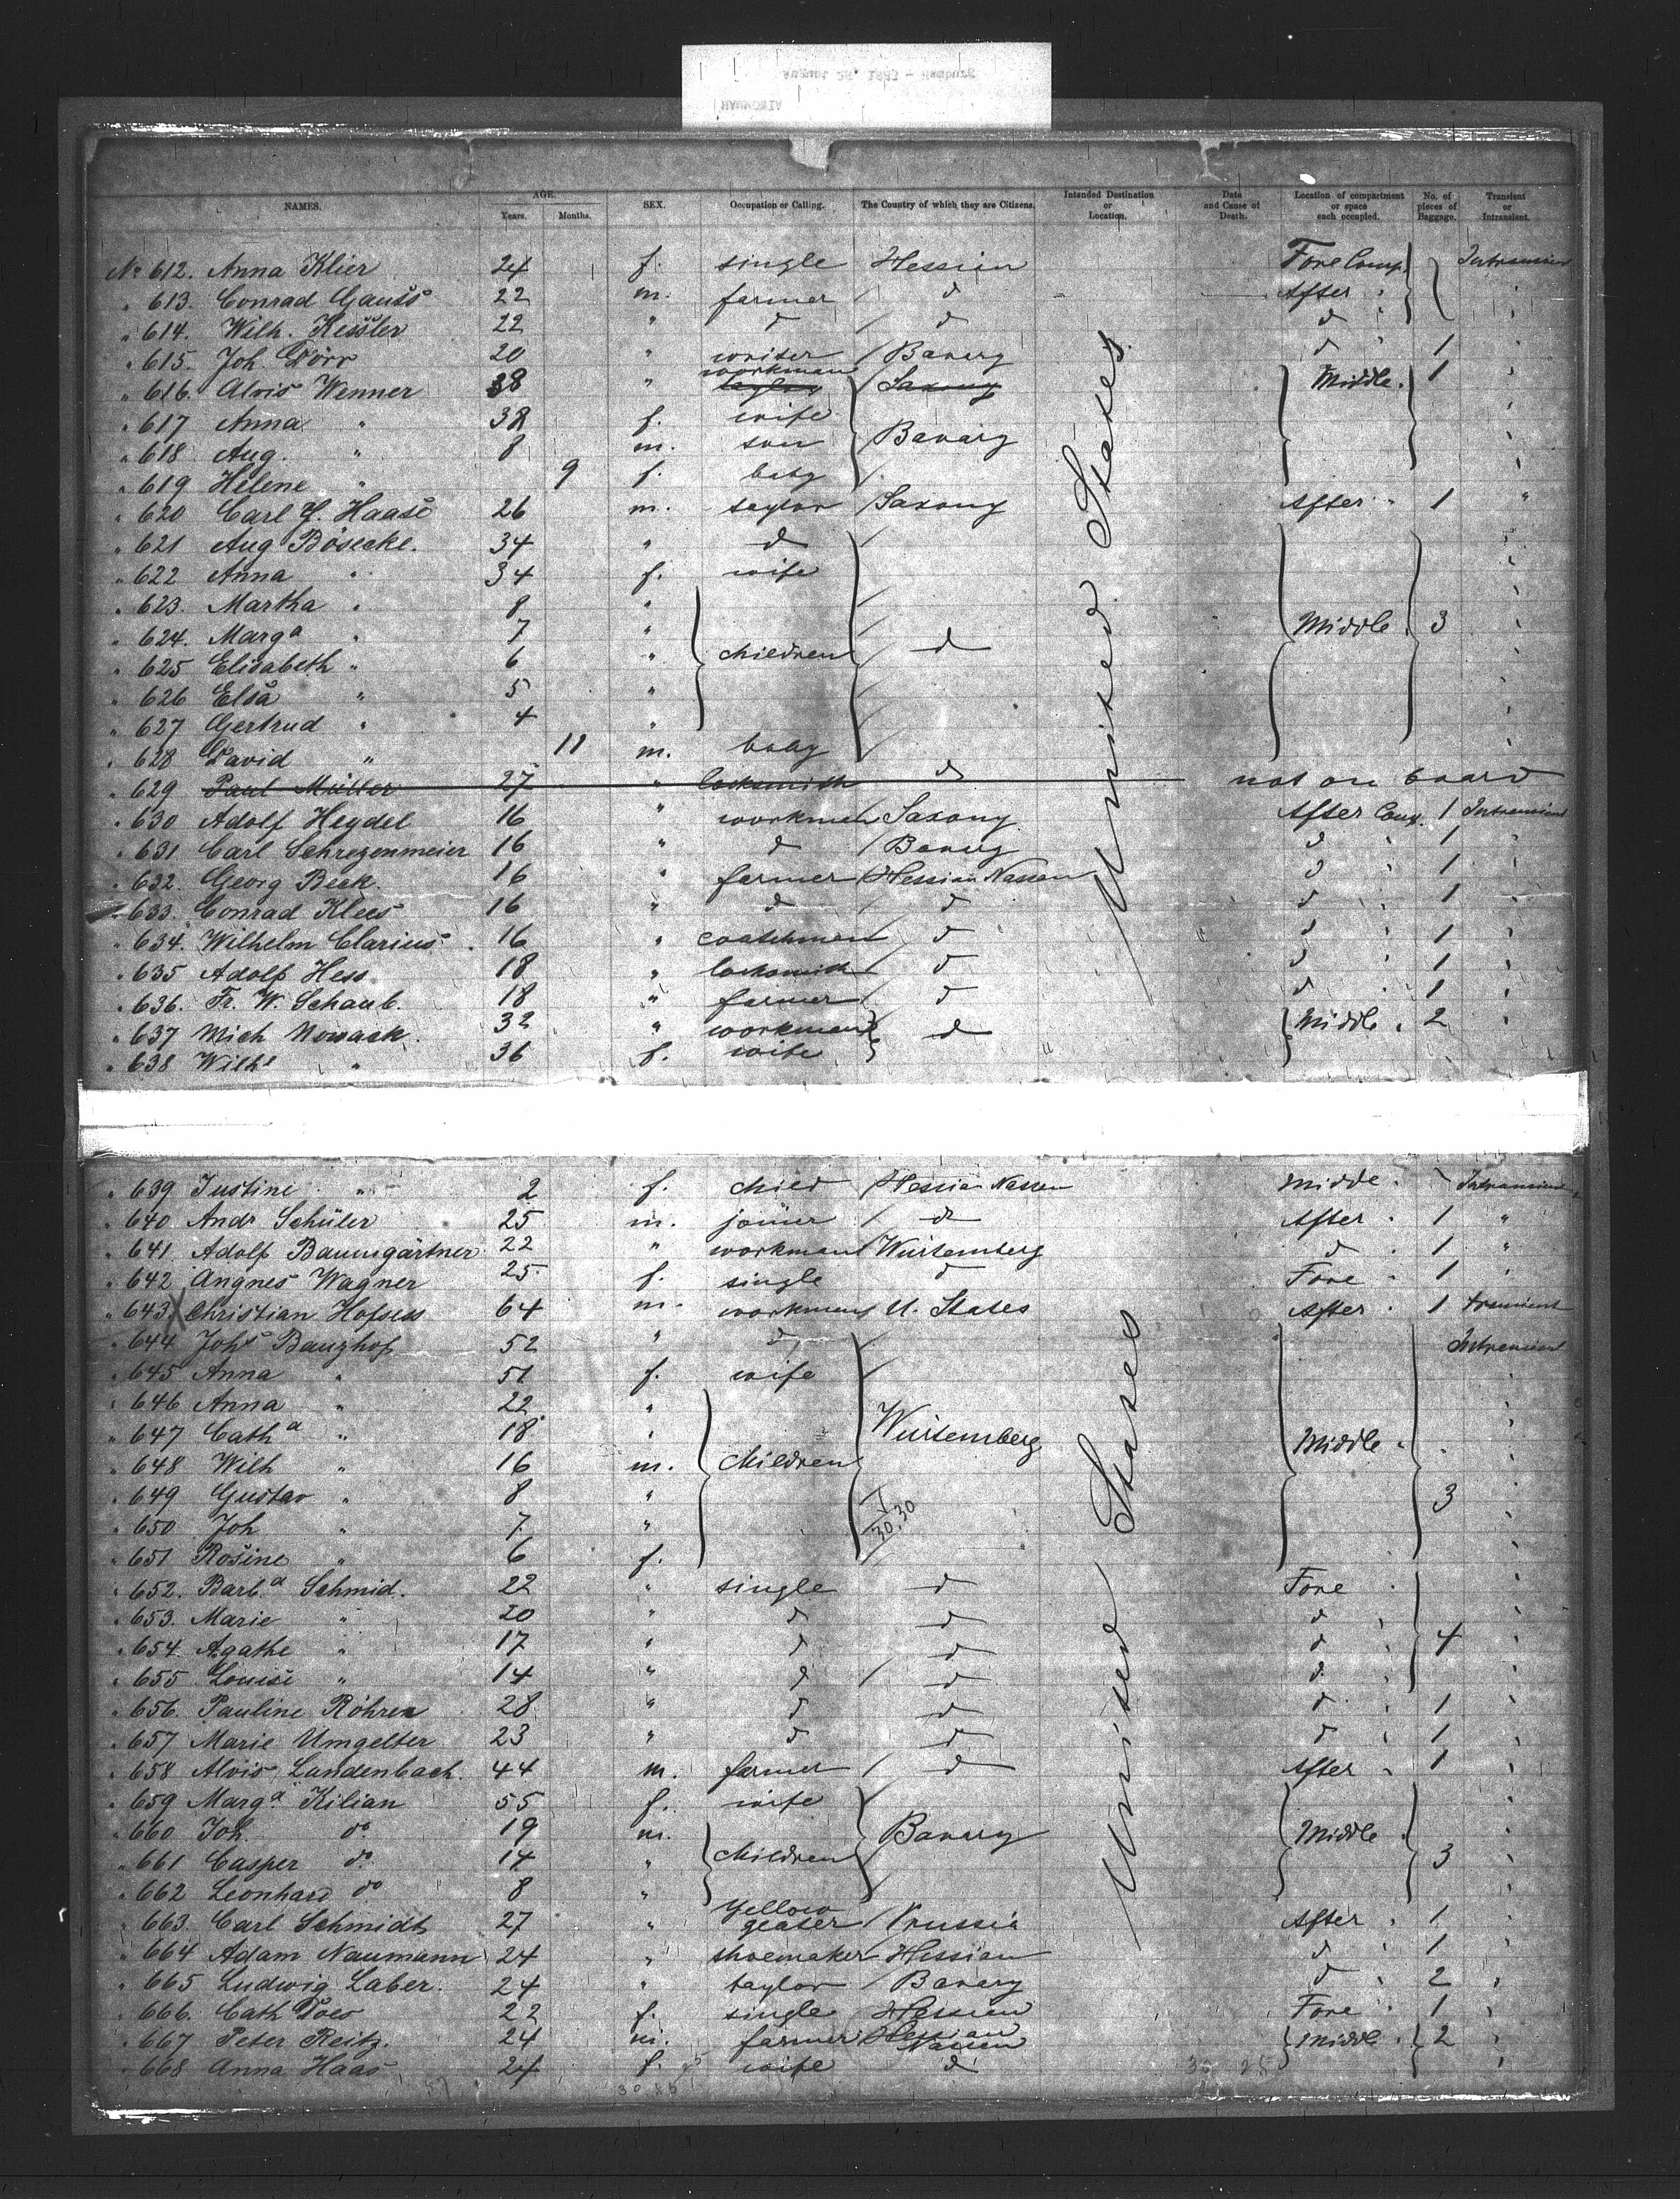 August 26, 1883 - Hamburg
HAMMONIA
NAMES. AGE. Years. Months. SEX. Occupation or Calling. The Country of which they are Citizens. Intended Destination or Location. Date and Cause of Death. Location of compartment or space each occupied. No. of pieces of Baggage. Transient or Intransient.
No 612. Anna Klier 24 f. single Hessian Fore Comp. Intransient
" 613. Conrad Gauss 22 m. farmer d After "
" 614. Wilh. Kessler 22 " d d d "
" 615. Joh. Dörr 20 " writer Bavary d " 1 "
" 616. Alois Wenner 38 " taylor workman Saxony Middle. 1 "
" 617 Anna " 38 f. wife
" 618 Aug. " 8 m. son Bavary
" 619 Helene " 9 f. baby
" 620 Carl H. Haase 26 m. taylor Saxony After " 1 "
" 621 Aug Bösecke. 34 " d
" 622 Anna " 34 f. wife
" 623. Martha " 8 "
" 624. Marga " 7 " Middle. 3
" 625 Elisabeth " 6 " children d
" 626 Elsa " 5 "
" 627 Gertrud " 4 "
" 628 David " 11 m. baby
" 629 Paul Müller 27 " locksmith d not on board
" 630 Adolf Heydel 16 " workman Saxony After Comp. 1 Intransient
" 631 Carl Schrezenmeier 16 " d Bavary d " 1 "
" 632. Georg Beck. 16 " farmer Hessian Nassau d " 1 "
" 633. Conrad Klees 16 " d d d " 1 "
" 634. Wilhelm Clarius 16 " coatchman d d " 1 "
" 635 Adolf Hess 18 " locksmith d d " 1 "
" 636. Fr. W. Schaub. 18 " farmer d d " 1 "
" 637 Mich Nowack. 32 " workman d Middle. 2 "
" 638 Wilhe " 36 f. wife
United States
" 639 Justine " 2 f. child Hessian Nassau Midde. Intransient
" 640 Andr Schüler 25 m. joiner d After " 1 "
" 641 Adolf Baumgärtner 22 " workman Würtemberg d " 1 "
" 642 Angnes Wagner 25 f. single d Fore " 1 "
" 643 X Christian Hofsess 64 m. workman U. States After " 1 transient
" 644 Johs Banzhof 52 " d Intransient
" 645 Anna " 51 f. wife
" 646 Anna " 22 "
" 647 Catha " 18 " Würtemberg
" 648 Wilh " 16 m. children Middle "
" 649 Gustav " 8 " 3
" 650 Joh " 7 " 30.30
" 651 Rosine " 6 f.
" 652. Barba Schmid. 22 " single d Fore "
" 653. Marie " 20 " d d d "
" 654 Agathe " 17 " d d d " 4
" 655 Louise " 14 " d d d "
" 656. Pauline Röhren 28 " d d d " 1 "
" 657 Marie Umgelter 23 " d d d " 1 "
" 658 Alois Landenbach. 44 m. farmer d After " 1 "
" 659 Marga Kilian 55 f. wife
" 660 Joh. do 19 m. Bavary Middle "
" 661 Casper do 14 " children 3
" 662 Leonhard do 8 "
" 663. Carl Schmidt 27 " Yellow geater Prussia After " 1 "
" 664 Adam Naumann 24 " shoemaker Hessian d " 1 "
" 665 Ludwig Laber. 24 " taylor Bavary d " 2 "
" 666. Cath Does 22 f. single Hessian Fore " 1 "
" 667 Peter Reitz. 24 m. farmer Hessian Nassau Middle " 2 "
" 668 Anna Haas 24 f. wife d
United States